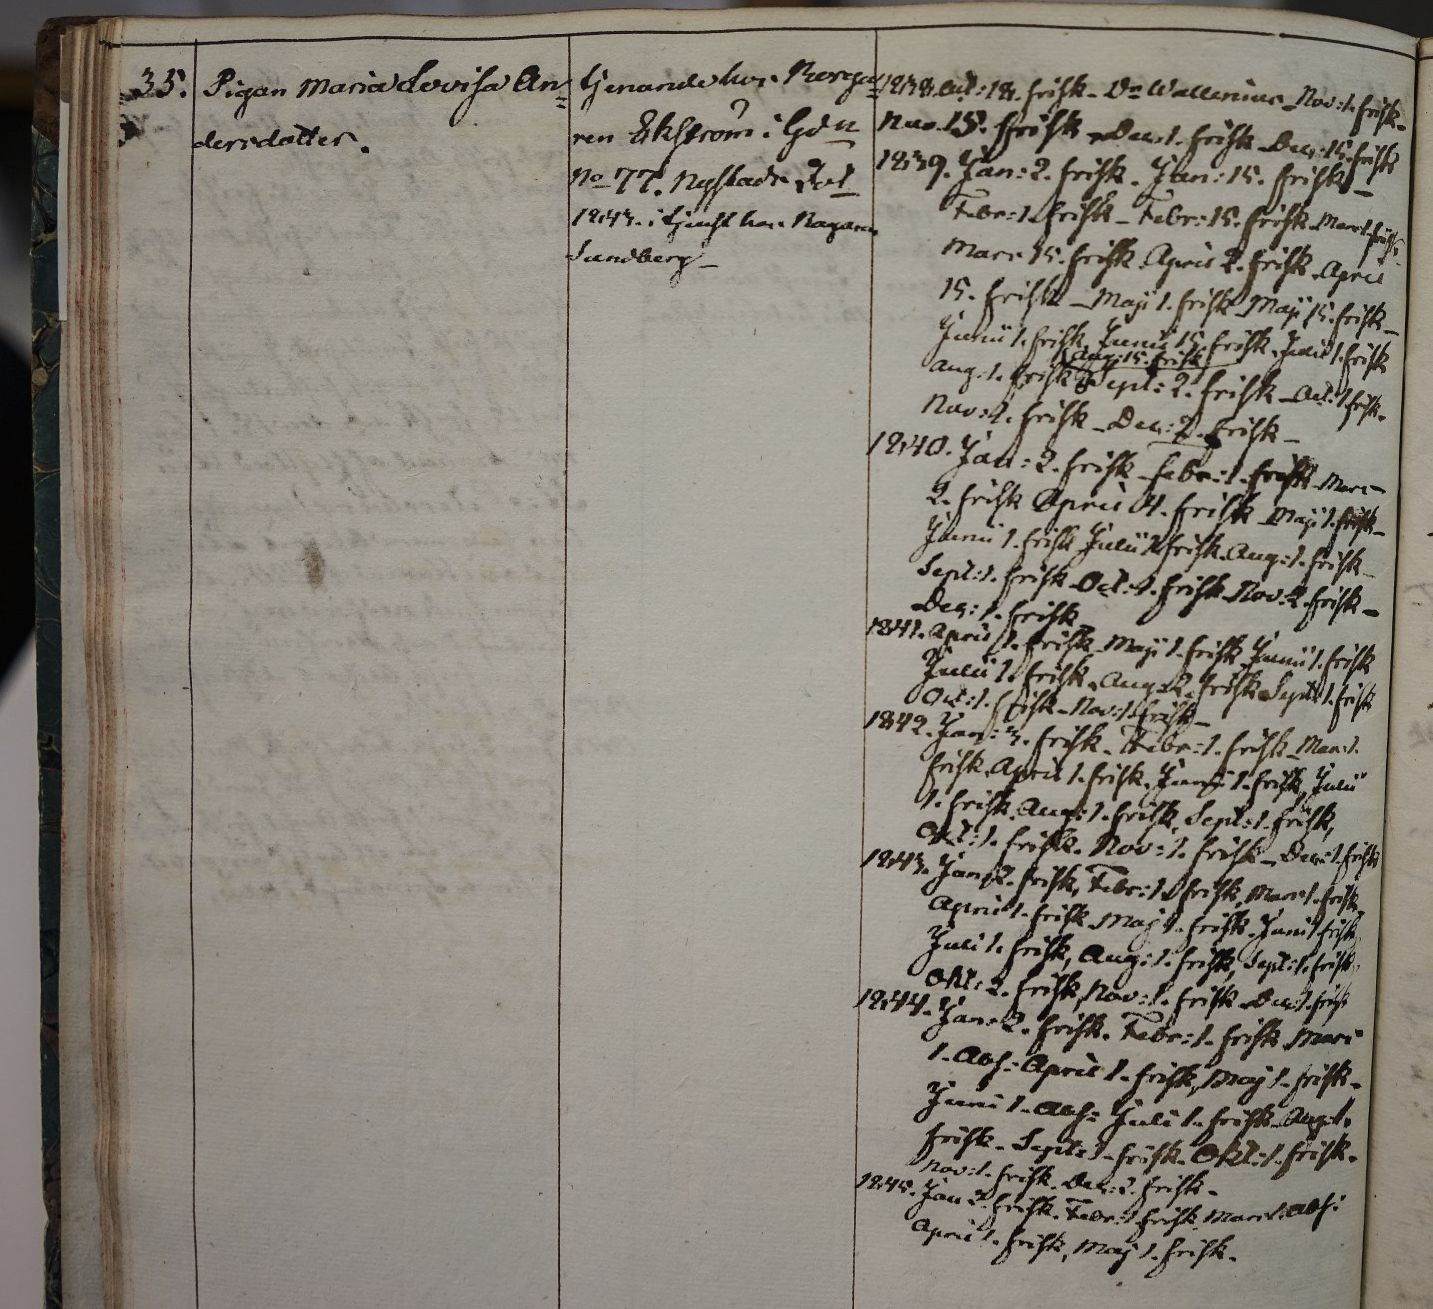 35.
Pigan Maria Lovisa An=
dersdotter.
tjenande hos Borga=
ren Ekström i Går
No 77. Nystads
1843. i tjenst hos Bagaren
Sundberg -
1838. Oct: 18. frisk - Dr Wallenius - Nov: 1. frisk.
Nov. 15. frisk - Dec: 1. frisk - Dec: 15. frisk
1839. Jan: 2. frisk. Jan: 15. frisk -
Febr: 1. frisk - Febr: 15. frisk - Mars 1. frisk.
Mars 15. frisk. April 2. frisk. April
15. frisk - Maji 1. frisk - Maji 15. frisk -
Junii 1. frisk, Junii 15. frisk. Julii 1. frisk
Aug: 15. frisk
Aug: 1. frisk Sept: 2. frisk - Oct: 1. frisk.
Nov: 1. frisk - Dec: 2. frisk -
1840. Jan: 2. frisk - Febr: 1. frisk - Mars
2. frisk April 1. frisk - Maji 1. frisk -
Junii 1. frisk Julii 1. frisk. Aug: 1. frisk -
Sept: 1. frisk - Oct: 1. frisk Nov: 2. frisk -
Dec: 1. frisk
1841. April 1. frisk - Maji 1. frisk Junii 1. frisk
Julii 1. frisk. Aug: 2. frisk Sept: 1. frisk
Oct: 1. frisk - Nov: 1. frisk -
1842. Jan: 3. frisk. Febr: 1. frisk - Mars 1.
frisk. April 1. frisk. Junii 1. frisk, Julii
1. frisk. Aug: 1. frisk, Sept: 1. frisk,
Okt: 1. frisk. Nov: 1. frisk - Dec: 1. frisk
1843. Jan: 2. frisk, Febr: 1. frisk, Mars 1. frisk,
April 1. frisk Maj 1. frisk. Juni 1. frisk,
Juli 1. frisk, Aug: 1. frisk, Sept: 1. frisk,
Okt: 2. frisk, Nov: 1. frisk - Dec: 1. frisk
1844. Jan: 2. frisk. Febr: 1. frisk Mars
1. Abs: April 1. frisk, Maj 1. frisk.
Juni 1. Abs: Juli 1. frisk - Aug: 1.
frisk - Sept: 1. frisk. Okt: 1. frisk.
Nov: 1. frisk. Dec: 2. frisk.
1845. Jan 2. frisk. Febr: 1. frisk Mars 1. Abs:
April 1. frisk, Maj 1. frisk.